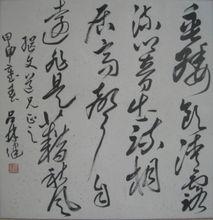 垂緌飲清露
流響出疏桐
居高聲自
遠非是藉秋風
文道兄正之
甲申春吕